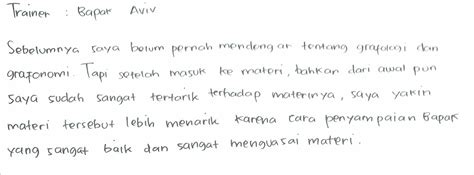 Trainer : Bapak Aviv
Sebelumnya saya belum pernah mendengar tentang grafologi dan
grafonomi. Tapi setelah masuk ke materi, bahkan dari awal pun
saya sudah sangat tertarik terhadap materinya, saya yakin
materi tersebut lebih menarik karena cara penyampaian Bapak
yang sangat baik dan sangat menguasai materi.